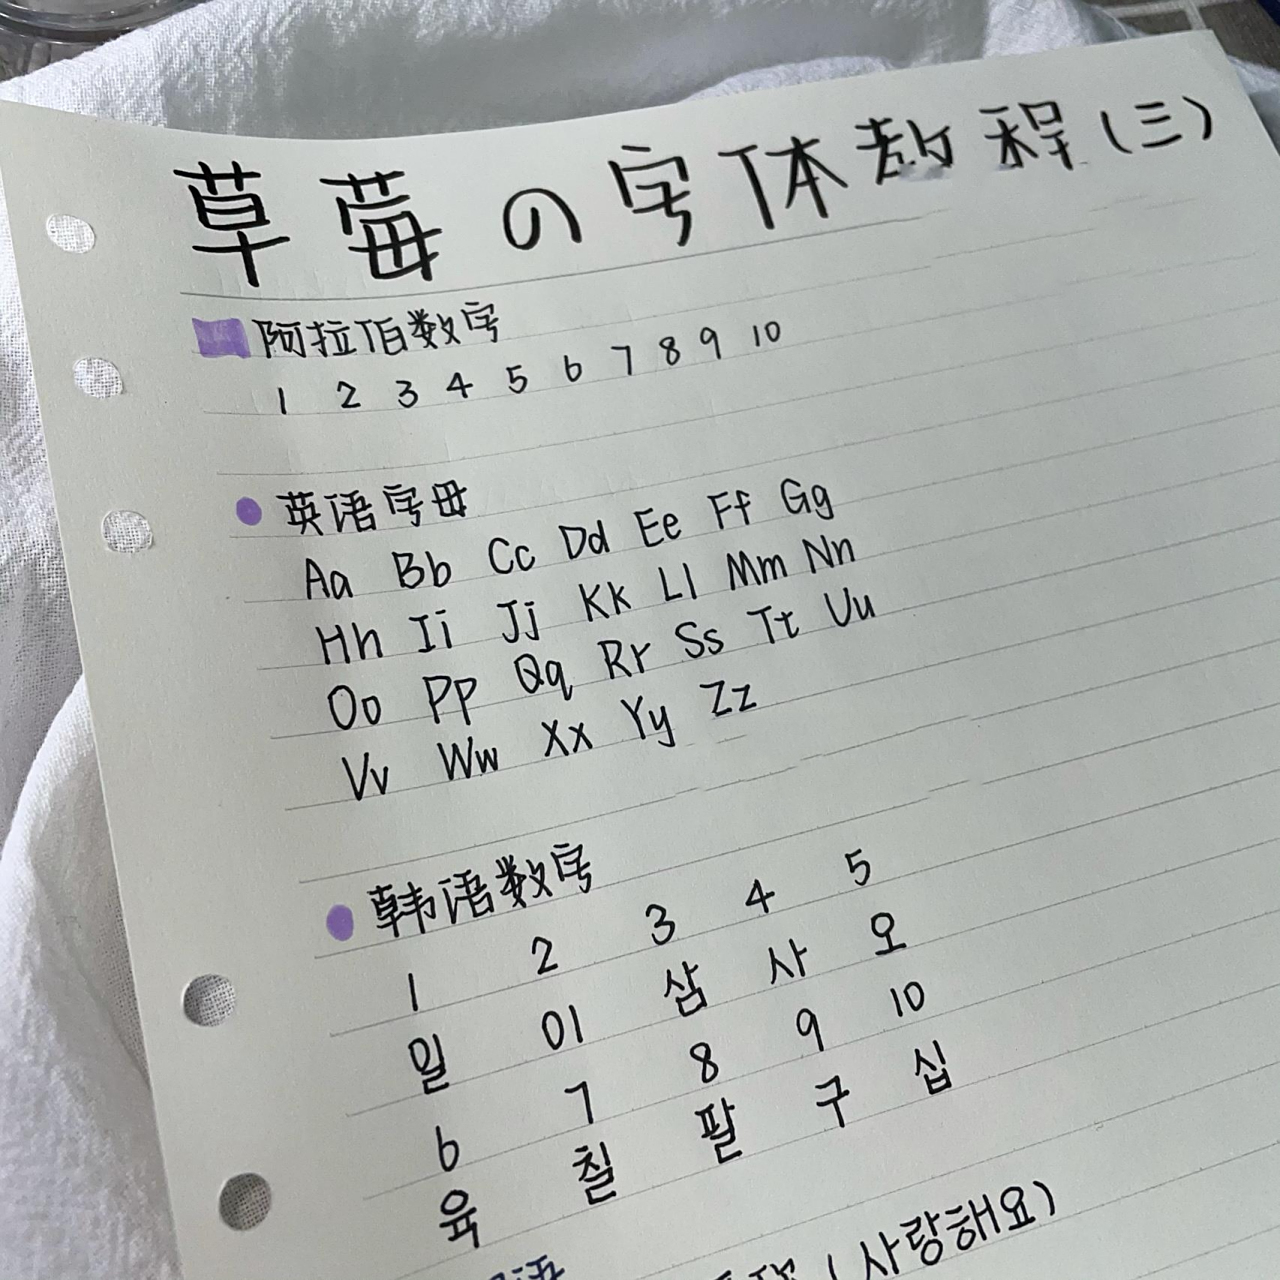 草莓の字体教程(三)
阿拉伯数字
1 2 3 4 5 6 7 8 9 10
英语字母
Aa Bb Cc Dd Ee Ff Gg
Hh Ii Jj Kk Ll Mm Nn
Oo Pp Qq Rr Ss Tt Uu
Vv Ww Xx Yy Zz
韩语数字
1 2 3 4 5
일 이 삼 사 오
6 7 8 9 10
육 칠 팔 구 십
语 (사랑해요)